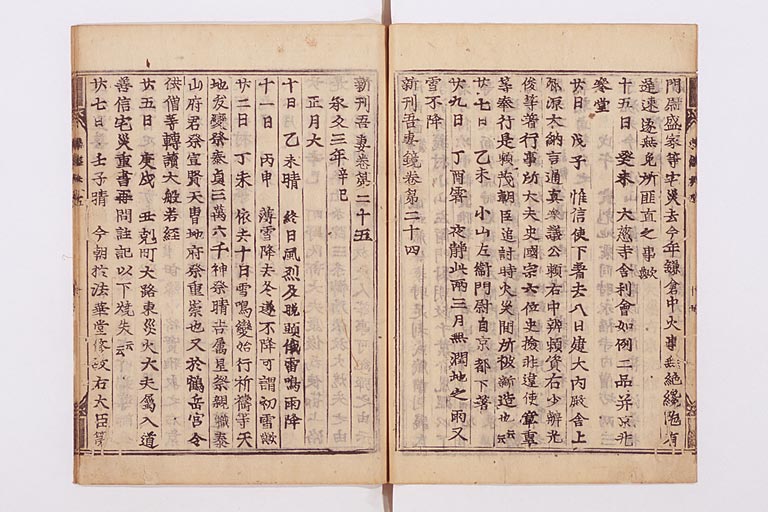 門尉盛家等宅災去今年鎌倉中火事無絶纔雖有
遅速遂無免所匪直之事歟
十五日 癸未 大慈寺舎利會如例二品并京兆
参堂
廿日 戊子 惟信使下著去八日建大内殿舎上
卿源大納言通具参議公頼右中辨頼資右少辨光
俊等著行事所大夫史國宗六位史検非違使章重
等奉行是頼茂朝臣追討時火災間所被新造也云云
廿七日 乙未 小山左衛門尉自京都下著
廿九日 丁酉霽 夜静此両三月無潤地之雨又
雪不降
新刊吾妻鏡卷第二十四
新刊吾妻卷第二十五
承久三年辛巳
正月大
十日 乙未晴 終日風烈及晩頭俄雷鳴雨降
十一日 丙申 薄雪降去冬遂不降可謂初雪歟
廿二日 丁未 依去十日雪鳴變始行祈祷等天
地災變祭泰貞三萬六千神祭晴吉属星祭親職泰
山府君祭宣賢天曹地府祭重宗也又於鶴岳宮令
供僧等轉讀大般若経
廿五日 庚戌 丑剋町大路東災火大夫属入道
善信宅災重書并問註記以下焼失云云
廿七日 壬子晴 今朝於法華堂修故右大臣第